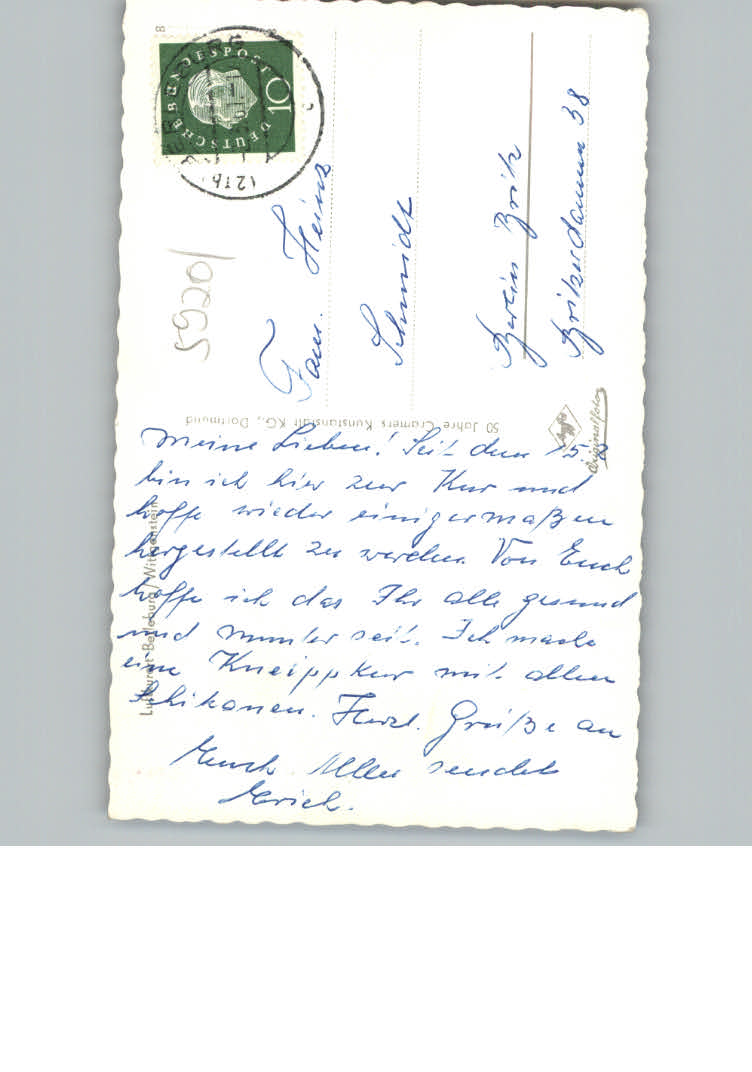 DEUTSCHE BUNDESPOST
10
5920/
Fam. Heinz
Schmidt
Berlin Britz
Britzerdamm 38
50 Jahre Cramers Kunstanstalt KG., Dortmund
Agfa
Originalfoto
Luftkurort Berleburg/Wittgenstein
Meine Lieben! Seit dem 15.
bin ich hier zur Kur und
hoffe wieder einigermaßen
hergestellt zu werden. Von Euch
hoffe ich das Ihr alle gesund
und munter seit. Ich mache
eine Kneippkur mit allen
Schikanen. Herzl. Grüße an
Euch Allen sendet
Erich.